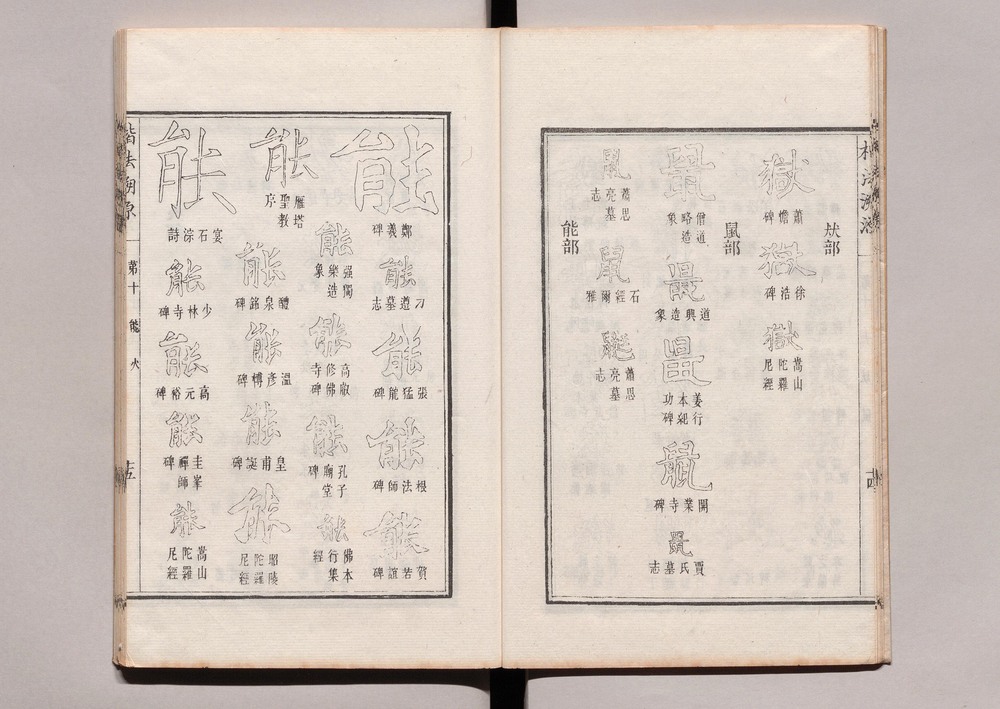 楷法溯源
十四
㹜部
獄 蕭憺碑
獄 徐浩碑
獄 嵩山陀羅尼經
鼠部
鼠 僧道略造象
鼠 道興造象
鼠 姜行本紀功碑
鼠 開業寺碑
鼠 賈氏墓志
鼠 蕭思亮墓志
鼠 石經爾雅
蕭思亮墓志
能部
能 鄭羲碑
能 刁遵墓志
能 張猛龍碑
能 根法師碑
能 賀若誼碑
能 雁塔聖教序
能 强獨樂造象
能 高叡修佛寺碑
能 孔子廟堂碑
能 佛本行集經
能 醴泉銘碑
能 溫彥博碑
能 皇甫誕碑
能 昭陵陀羅尼經
能 宴石淙詩
能 少林寺碑
能 高元裕碑
能 圭峯禪師碑
能 嵩山陀羅尼經
楷法溯源 第十 能 火 十五